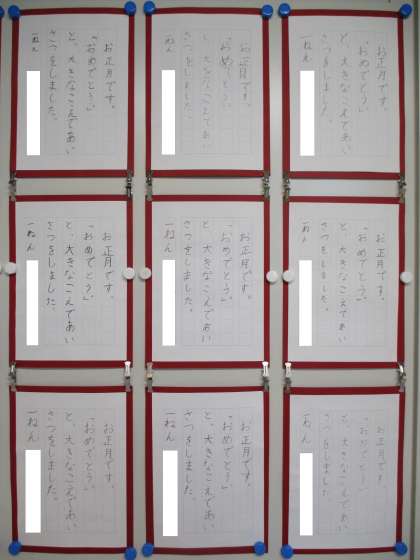 お正月です。
「おめでとう」
と、大きなこえであい
さつをしました。
一ねん
お正月です。
「おめでとう」
と、大きなこえであい
さつをしました。
一ねん
お正月です。
「おめでとう」
と、大きなこえであい
さつをしました。
一ねん
お正月です。
「おめでとう」
と、大きなこえであい
さつをしました。
一ねん
お正月です。
「おめでとう」
と、大きなこえであい
さつをしました。
一ねん
お正月です。
「おめでとう」
と、大きなこえであい
さつをしました。
一ねん
お正月です。
「おめでとう」
と、大きなこえであい
さつをしました。
一ねん
お正月です。
「おめでとう」
と、大きなこえであい
さつをしました。
一ねん
お正月です。
「おめでとう」
と、大きなこえであい
さつをしました。
一ねん